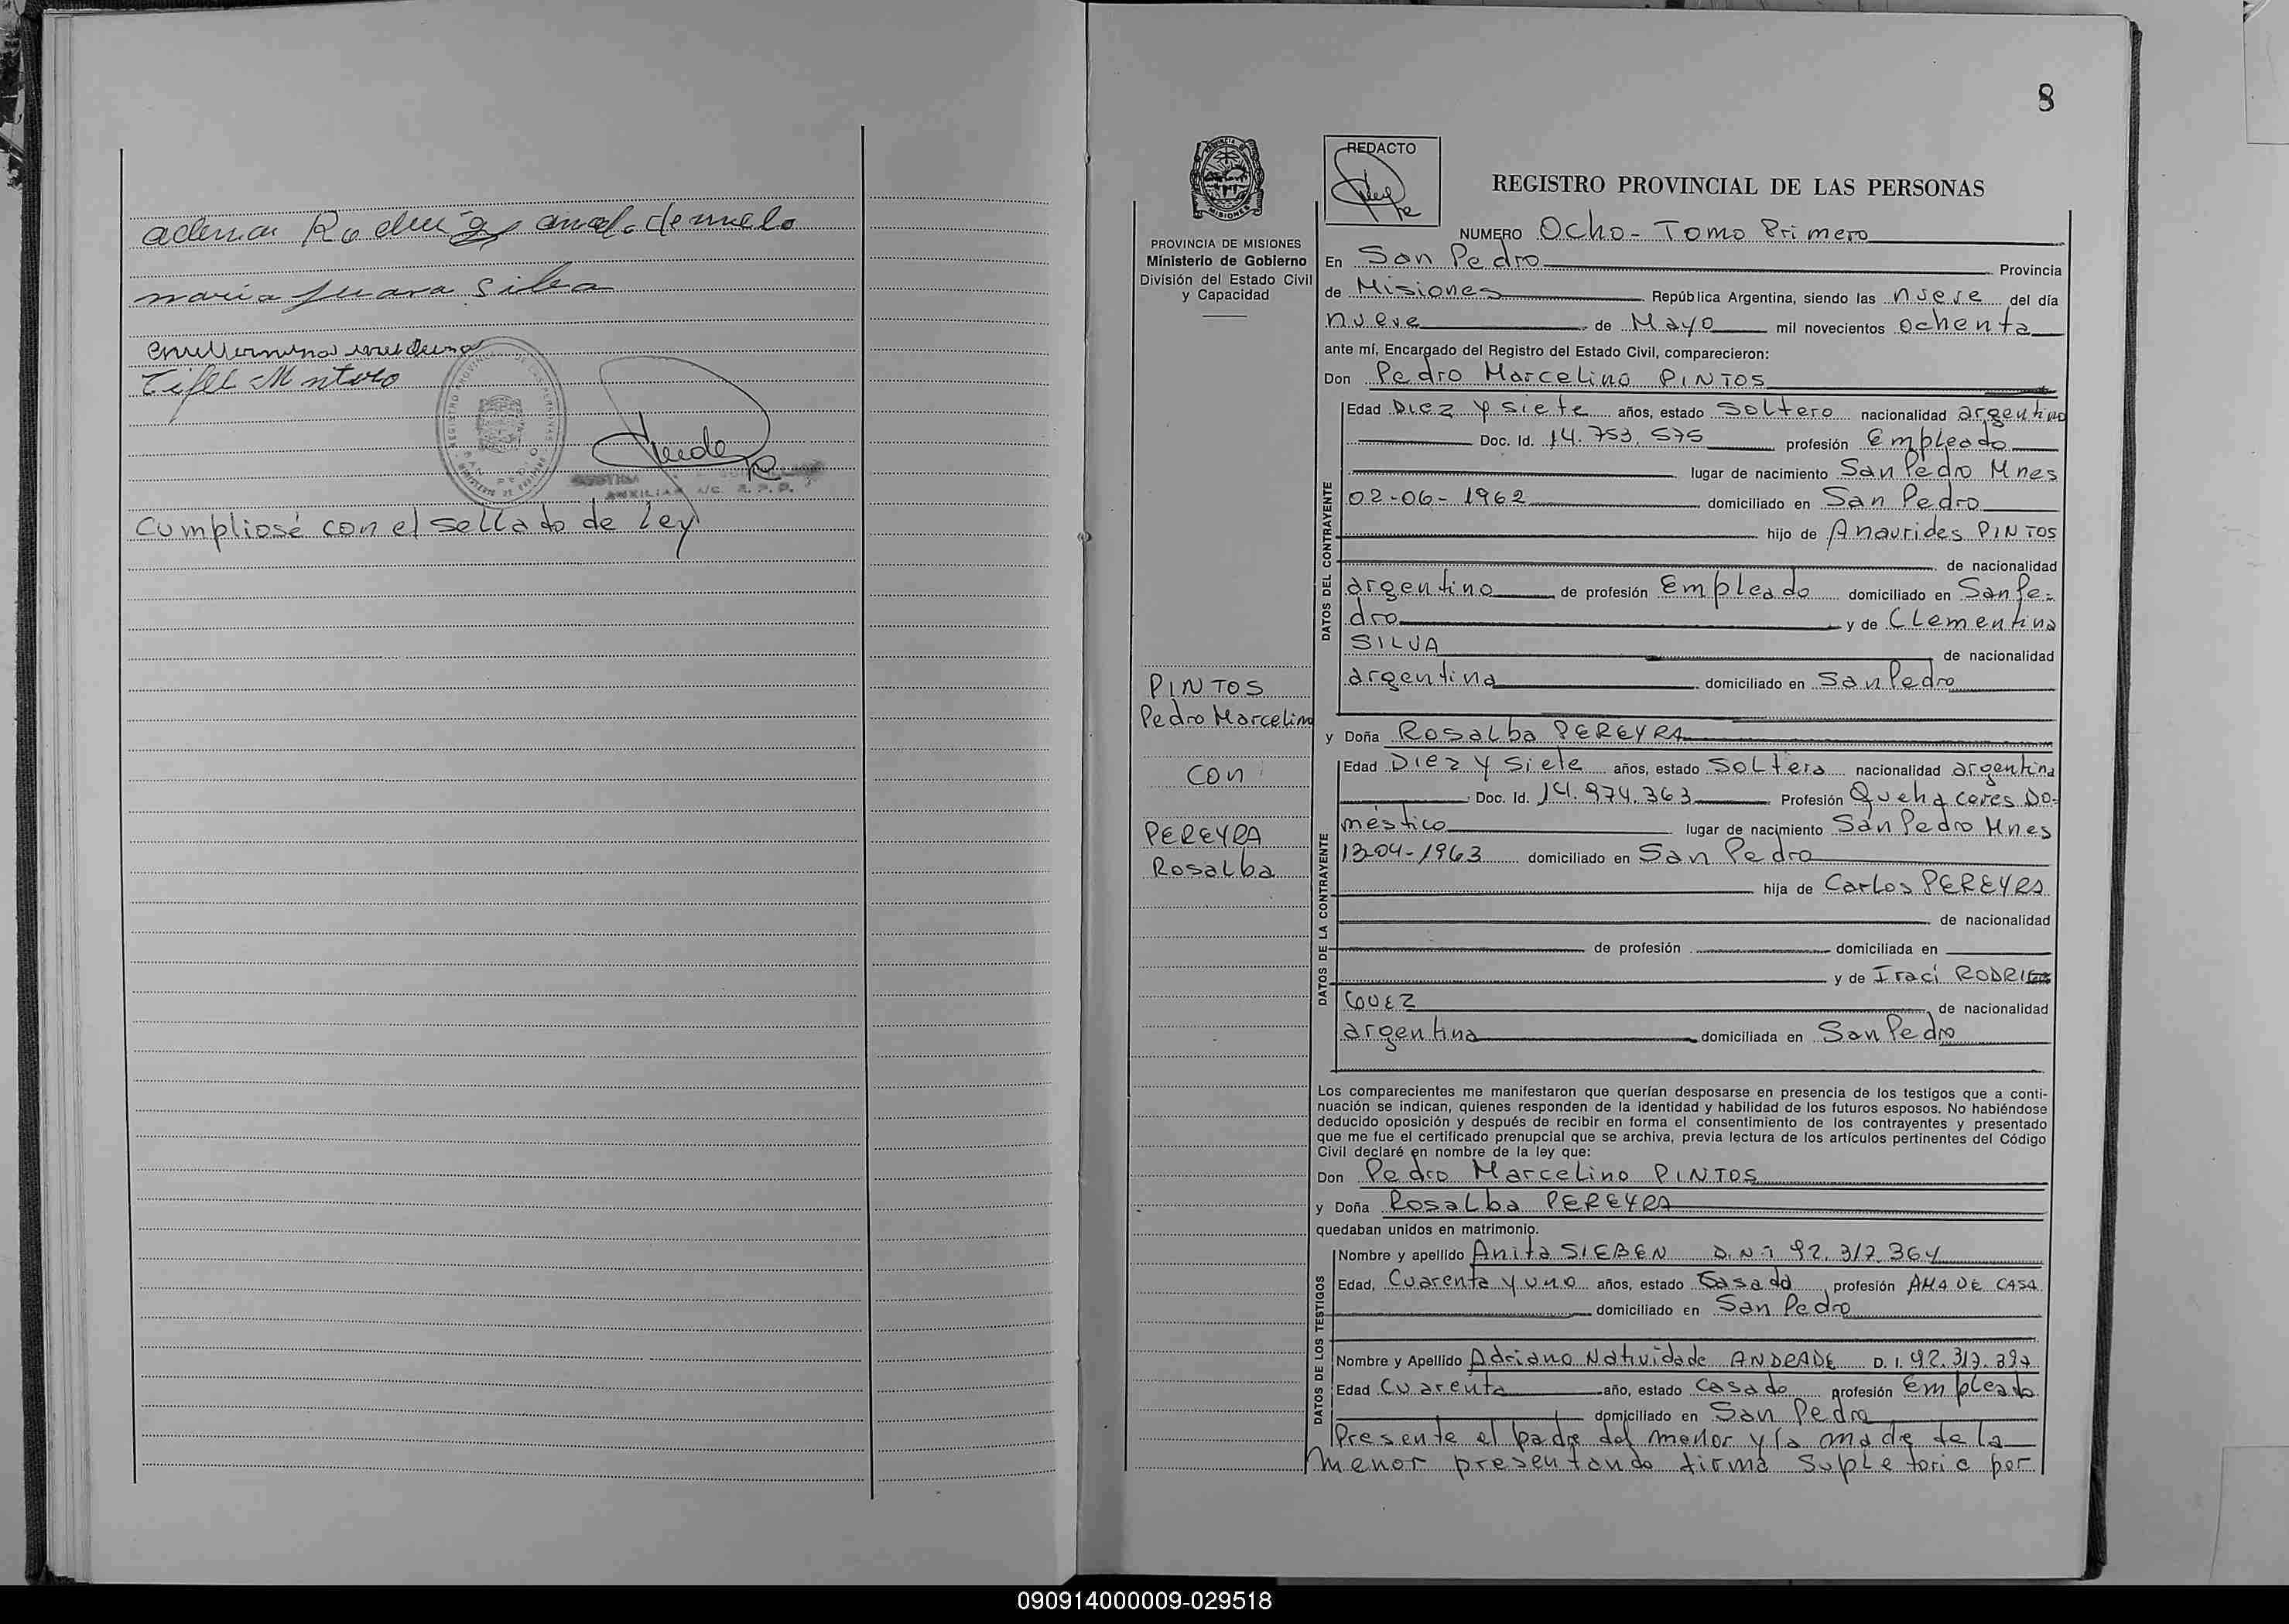 maria Juana Silva
Cumpliosé con el sellado de ley
8
REDACTO
REGISTRO PROVINCIAL DE LAS PERSONAS
PROVINCIA DE MISIONES
Ministerio de Gobierno
División del Estado Civil
y Capacidad
NUMERO Ocho - Tomo Primero
En San Pedro Provincia
de Misiones República Argentina, siendo las nueve del día
nueve de Mayo mil novecientos ochenta
ante mí, Encargado del Registro del Estado Civil, comparecieron:
Don Pedro Marcelino PINTOS
Edad Diez y siete años, estado soltero nacionalidad argentino
Doc. Id. 14.753.575 profesión Empleado
lugar de nacimiento San Pedro Mnes
02-06-1962 domiciliado en San Pedro
hijo de Anaurides PINTOS
de nacionalidad
argentino de profesión Empleado domiciliado en San Pe-
dro y de Clementina
SILVA de nacionalidad
argentina domiciliado en San Pedro
DATOS DEL CONTRAYENTE
PINTOS
Pedro Marcelino
con
PEREYRA
Rosalba
y Doña Rosalba PEREYRA
Edad Diez y Siete años, estado soltera nacionalidad argentina
Doc. Id. 14.974.363 Profesión Quehaceres Do-
méstico lugar de nacimiento San Pedro Mnes
13-04-1963 domiciliado en San Pedro
hija de Carlos PEREYRA
de nacionalidad
de profesión domiciliada en
y de Iraci RODRI
GUEZ de nacionalidad
argentina domiciliada en San Pedro
DATOS DE LA CONTRAYENTE
Los comparecientes me manifestaron que querían desposarse en presencia de los testigos que a conti-
nuación se indican, quienes responden de la identidad y habilidad de los futuros esposos. No habiéndose
deducido oposición y después de recibir en forma el consentimiento de los contrayentes y presentado
que me fue el certificado prenupcial que se archiva, previa lectura de los artículos pertinentes del Código
Civil declaré en nombre de la ley que:
Don Pedro Marcelino PINTOS
y Doña Rosalba PEREYRA
quedaban unidos en matrimonio.
Nombre y apellido Anita SIEBEN D.N.I 92.317.364
Edad, Cuarenta y uno años, estado Casada profesión AMA DE CASA
domiciliado en San Pedro
Nombre y Apellido Adriano Natividade ANDRADE D.I. 92.317.397
Edad Cuarenta año, estado Casado profesión Empleado
domiciliado en San Pedro
DATOS DE LOS TESTIGOS
Presente el padre del menor y la madre de la
menor presentando firma supletoria por
090914000009-029518